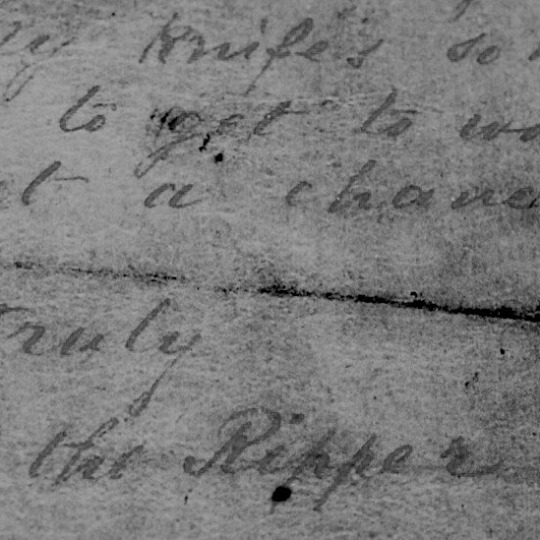 My knife's so
to get to wo
et a chanc
truly
the Ripper